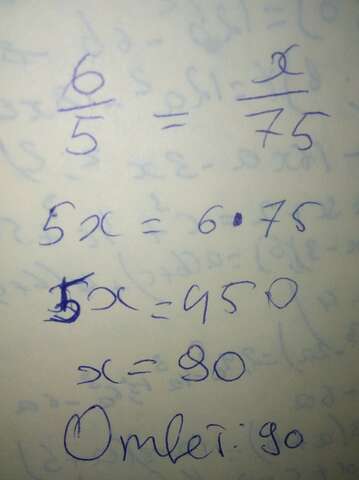 6/5 = x/75
5x = 6·75
5x = 450
x = 90
Ответ: 90